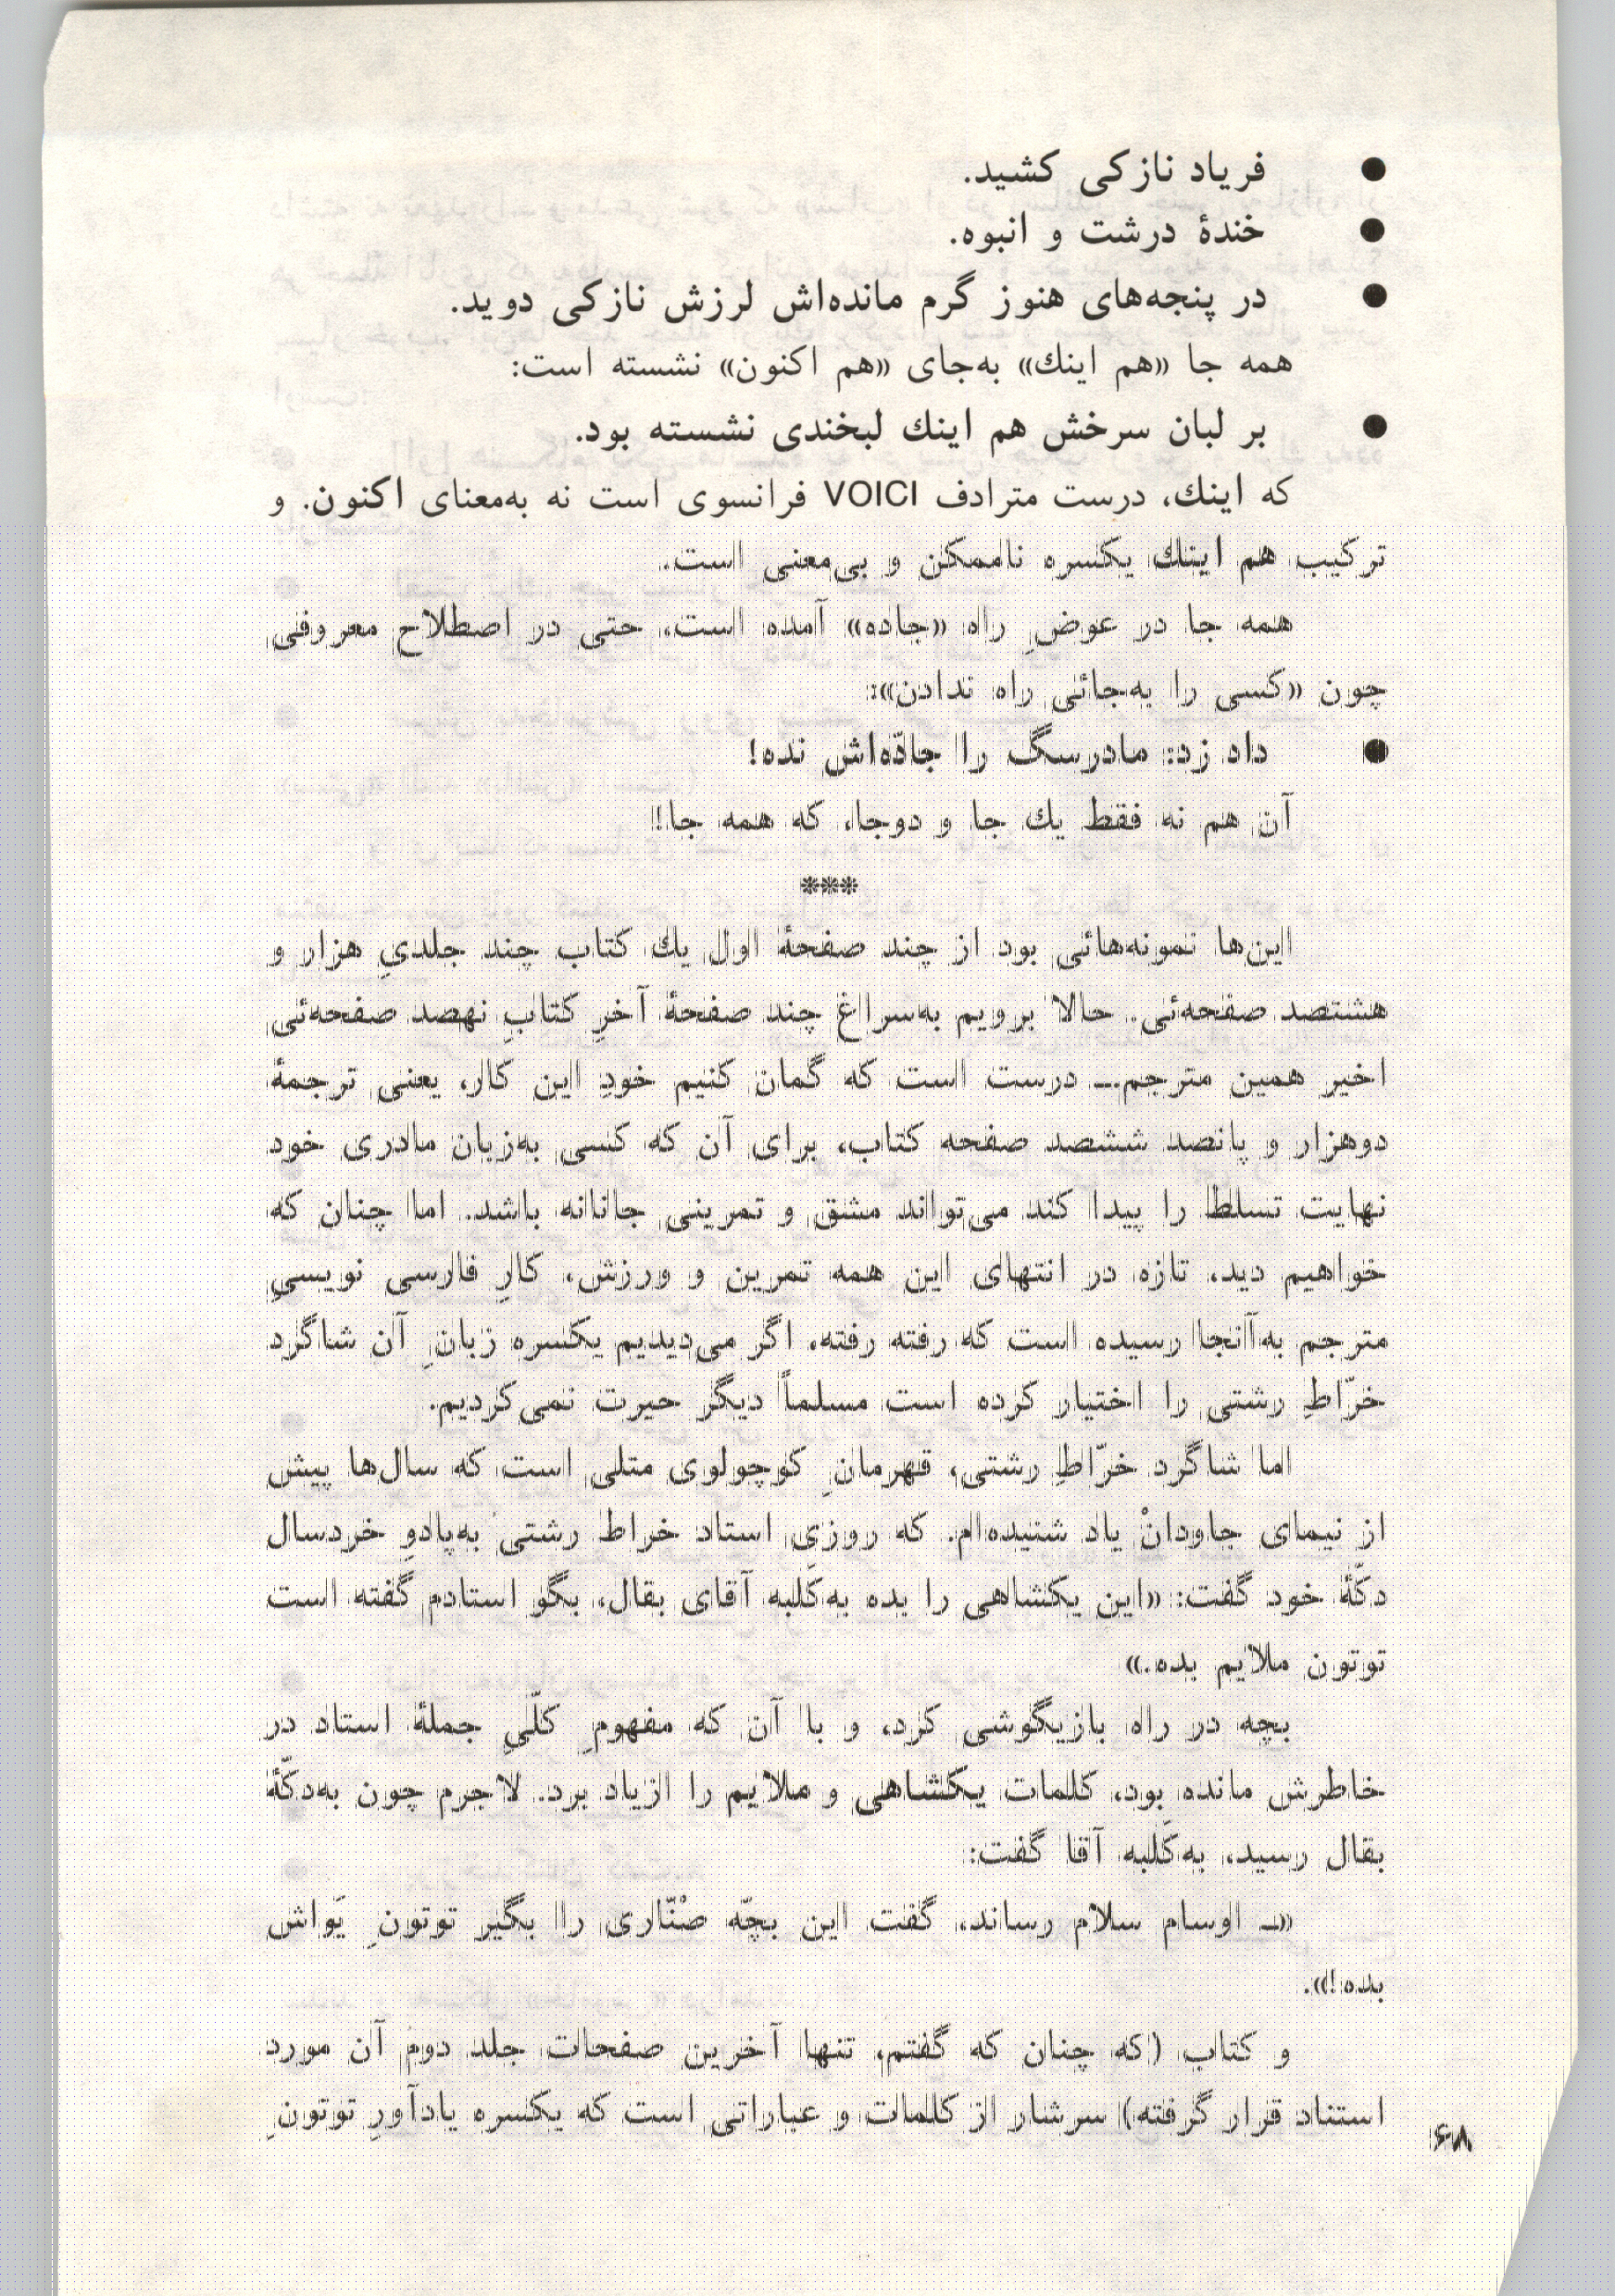 ● فریاد نازکی کشید.
● خندهٔ درشت و انبوه.
● در پنجه‌های هنوز گرم مانده‌اش لرزش نازکی دوید.
همه جا «هم اینك» به‌جای «هم اکنون» نشسته است:
● بر لبان سرخش هم اینك لبخندی نشسته بود.
که اینك، درست مترادف VOICI فرانسوی است نه به‌معنای اکنون. و
ترکیب هم اینك یکسره ناممکن و بی‌معنی است.
همه جا در عوضِ راه «جاده» آمده است، حتی در اصطلاح معروفی
چون «کسی را به‌جائی راه ندادن»:
● داد زد: مادرسگ را جادّه‌اش نده!
آن هم نه فقط یك جا و دوجا، که همه جا!
***
این‌ها نمونه‌هائی بود از چند صفحهٔ اول یك کتاب چند جلدیِ هزار و
هشتصد صفحه‌ئی. حالا برویم به‌سراغ چند صفحهٔ آخرِ کتابِ نهصد صفحه‌ئی
اخیر همین مترجم.ــ درست است که گمان کنیم خودِ این کار، یعنی ترجمهٔ
دوهزار و پانصد ششصد صفحه کتاب، برای آن که کسی به‌زبان مادری خود
نهایت تسلط را پیدا کند می‌تواند مشق و تمرینی جانانه باشد. اما چنان که
خواهیم دید، تازه در انتهای این همه تمرین و ورزش، کارِ فارسی نویسیِ
مترجم به‌آنجا رسیده است که رفته رفته، اگر می‌دیدیم یکسره زبانِ آن شاگرد
خرّاطِ رشتی را اختیار کرده است مسلماً دیگر حیرت نمی‌کردیم.
اما شاگرد خرّاطِ رشتی، قهرمانِ کوچولوی متلی است که سال‌ها پیش
از نیمای جاودانْ یاد شنیده‌ام. که روزی استاد خراط رشتی به‌پادوِ خردسال
دکّهٔ خود گفت: «این یکشاهی را بده به‌کَلبه آقای بقال، بگو استادم گفته است
توتون ملایم بده.»
بچه در راه بازیگوشی کرد، و با آن که مفهومِ کلّیِ جملهٔ استاد در
خاطرش مانده بود، کلمات یکشاهی و ملایم را ازیاد برد. لاجرم چون به‌دکّهٔ
بقال رسید، به‌کَلبه آقا گفت:
«ــ اوسام سلام رساند، گفت این بچّه صْنّاری را بگیر توتونِ یَواش
بده!».
و کتاب (که چنان که گفتم، تنها آخرین صفحات جلد دوم آن مورد
استناد قرار گرفته) سرشار از کلمات و عباراتی است که یکسره یادآورِ توتونِ
۶۸